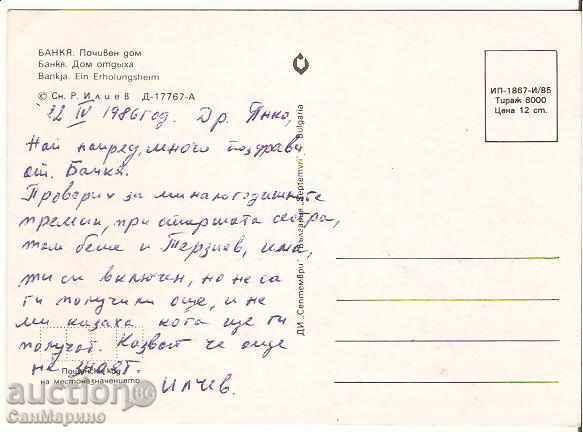 БАНКЯ. Почивен дом
Банкя. Дом отдыха
Bankja. Ein Erholungsheim
© Сн. Р. Илиев Д-17767-А
22 IV 1986 год. Др. Янко,
Най напред, много поздрави
от Банкя.
Проверих за миналогодишните
премии, при старшата сестра,
там беше и Терзиев, има,
ти си включен, но не са
ги получили още, и не
ми казаха кога ще ги
получат. Казват че още
не знаят.
Илчев.
Пощенски код
на местоназначението
ДИ „Септември" България „Septemvri" Bulgaria
ИП-1867-И/85
Тираж 8000
Цена 12 ст.
auction.BG
СанМарино